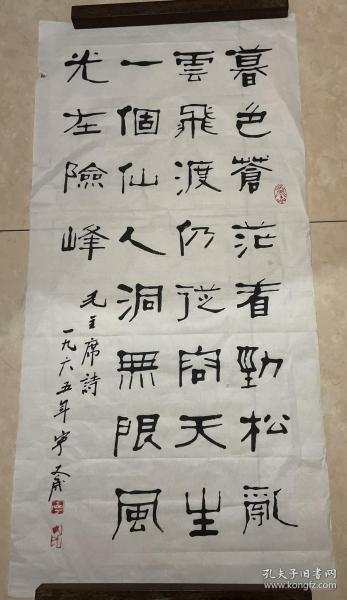 暮色蒼茫看勁松亂
雲飛渡仍從容天生
一個仙人洞無限風
光在險峰
毛主席詩
一九六五年寧
孔夫子旧书网
www.kongfz.com